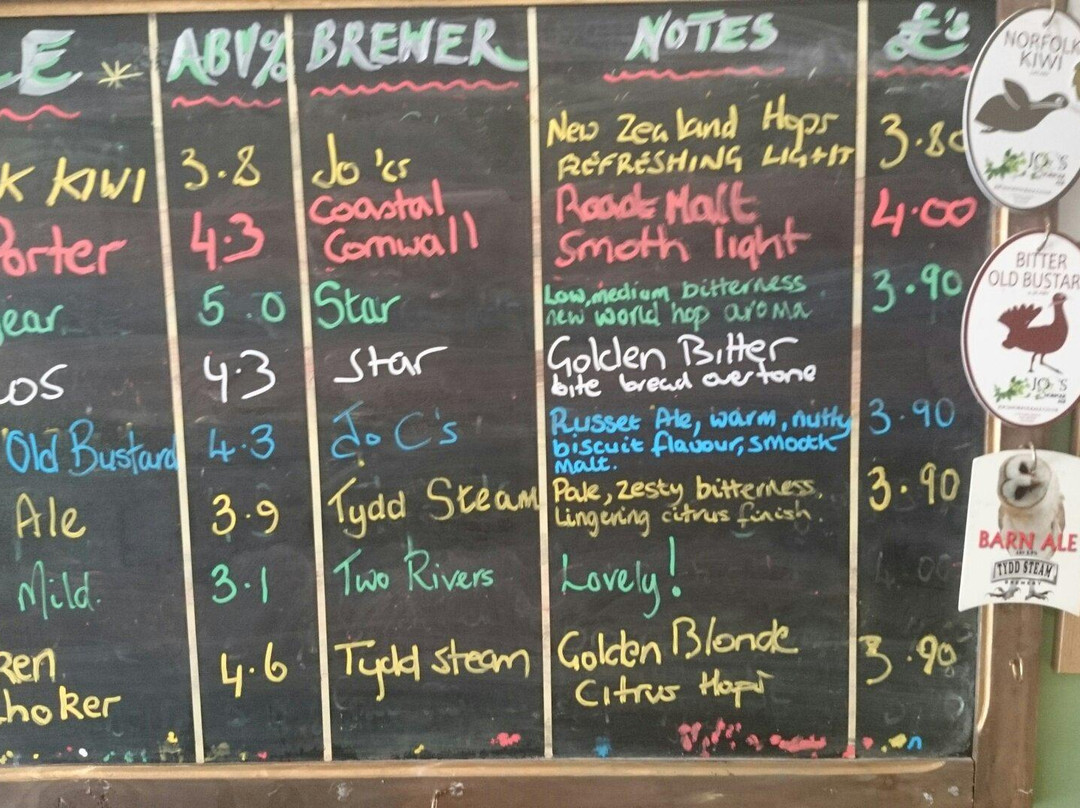 E * ABV% BREWER NOTES £'s
K KIWI 3.8 Jo'cs New Zealand Hops 3.80
REFRESHING LIGHT
Porter 4.3 Coastal Roadt Malt 4.00
Cornwall Smoth light
year 5.0 Star Low, medium, bitterness 3.90
new world hop aroma
LOS 4.3 Star Golden Bitter
bite bread overtone
Old Bustard 4.3 Jo C's Russet Ale, warm, nutty 3.90
biscuit flavour, smooth
malt.
Ale 3.9 Tydd Steam Pale, zesty bitterness, 3.90
Lingering citrus finish.
Mild. 3.1 Two Rivers Lovely! 4.00
ken 4.6 Tydd steam Golden Blonde 3.90
choker Citrus Hops
NORFOLK
KIWI
JO C'S
BITTER
OLD BUSTAR
JO C'S
BARN ALE
TYDD STEAM
BREWERY